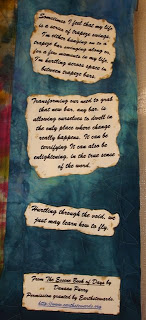 Sometimes I feel that my life
is a series of trapeze swings.
I'm either hanging on to a
trapeze bar swinging along or,
for a few moments in my life,
I'm hurtling across space in
between trapeze bars.
Transforming our need to grab
that new bar, any bar, is
allowing ourselves to dwell in
the only place where change
really happens. It can be
terrifying. It can also be
enlightening, in the true sense
of the word.
Hurtling through the void, we
just may learn how to fly.
From The Essene Book of Days by
Danaan Parry
Permission granted by Earthstewards
http://www.earthstewards.org